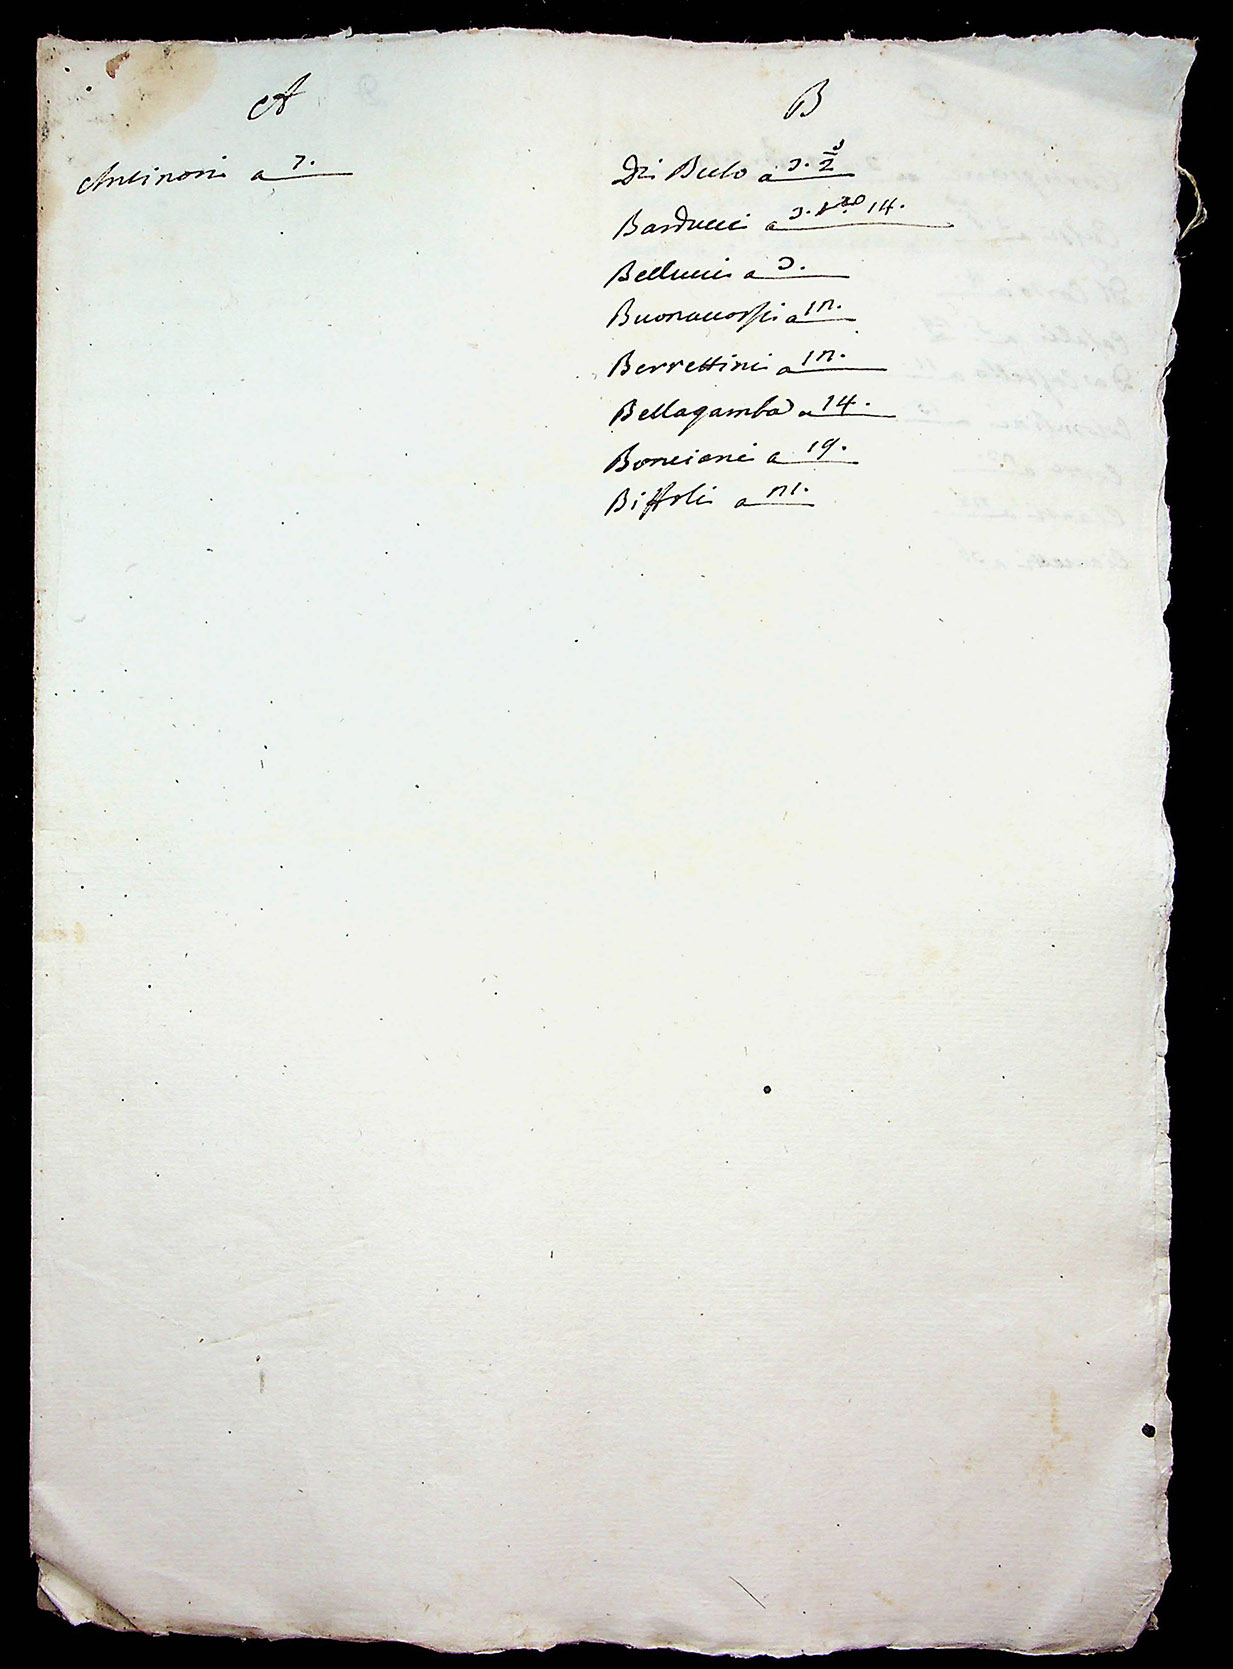 A
Antinori a 7.
B
Del Bello a 3. 2
Barducci a 3. 14.
Bellucci a 3.
Buonaccorsi a 12.
Berrettini a 12.
Bellagamba a 14.
Bonciani a 19.
Biffoli a 21.